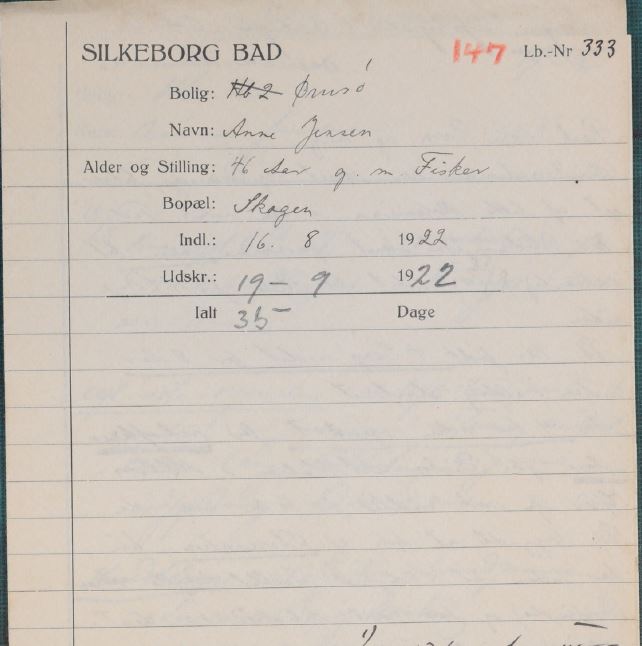 SILKEBORG BAD 147 Lb.-Nr 333
Bolig: Hb 2 Ørnsø
Navn: Anne Jensen
Alder og Stilling: 46 Aar g. m. Fisker
Bopæl: Skagen
Indl.: 16. 8 1922
Udskr.: 19 - 9 1922
Ialt 35 Dage